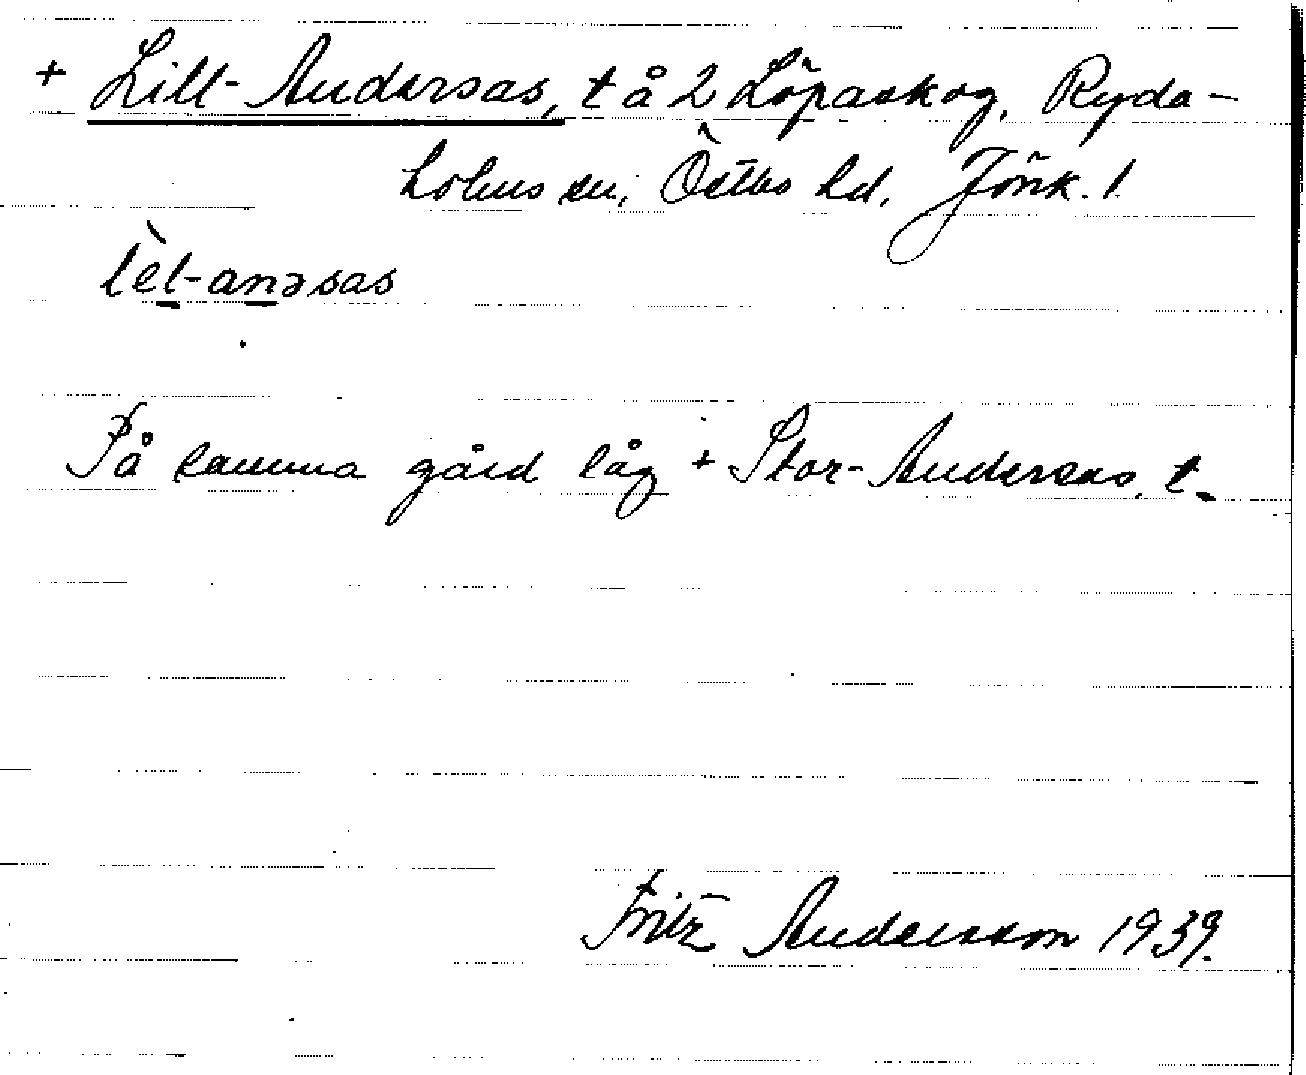 + Lill-Andersas, t å 2 Löpaskog, Ryda-
holms sn, Östbo hd, Jönk. l
lèt-anəsas
På samma gård låg + Stor-Andersas, t.
Fritz Andersson 1939.